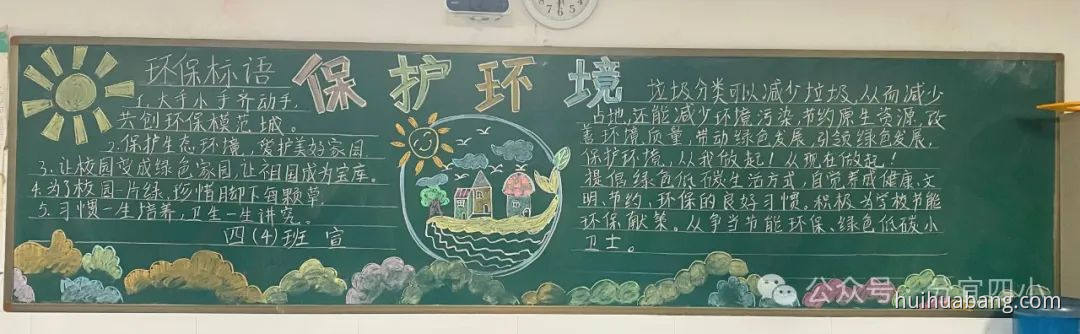 保护环境
环保标语
1.大手小手齐动手,
共创环保模范城。
2.保护生态环境,爱护美好家园
3.让校园变成绿色家园,让祖国成为宝库。
4.为了校园一片绿,珍惜脚下每颗草
5.习惯一生培养,卫生一生讲究。
四(4)班 宣
垃圾分类可以减少垃圾,从而减少
占地,还能减少环境污染,节约原生资源,改
善环境质量,带动绿色发展,引领绿色发展,
保护环境,从我做起!从现在做起!
提倡绿色低碳生活方式,自觉养成健康、文
明、节约、环保的良好习惯。积极为学校节能
环保献策。从争当节能环保、绿色低碳小
卫士。
公众号 分宜四小
huihuabang.com